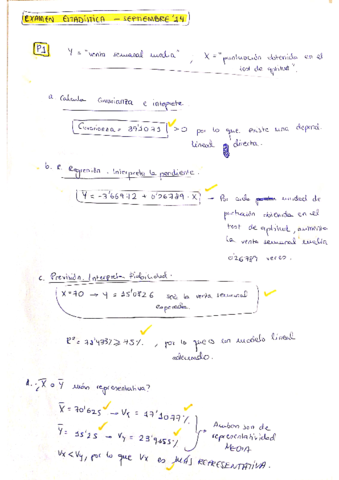 EXAMEN ESTADÍSTICA - SEPTIEMBRE '14
P1 Y = "venta semanal media" , X = "puntuación obtenida en el
test de aptitud".
a. Calcular Covarianza e interprete
Covarianza = 89'1075 >0 por lo que existe una depend.
lineal directa.
b. R. Regresión. Interpreta la pendiente.
Y = -3'66972 + 0'26789 · X → Por cada unidad de
puntuación obtenida en el
test de aptitud, aumenta
la venta semanal media
0'26789 veces.
c. Previsión, Interpreta Fiabilidad.
X=70 → Y = 15'0826 será la venta semanal
esperada
R² = 72'475% ≥ 75%, por lo que es un modelo lineal
adecuado.
d. ¿X̄ o Ȳ más representativa?
X̄ = 70'625 → Vx = 17'1077%
Ambas son de
Ȳ = 15'25 → Vy = 23'9455%
representatividad
MEDIA
Vx < Vy, por lo que Vx es MÁS REPRESENTATIVA.